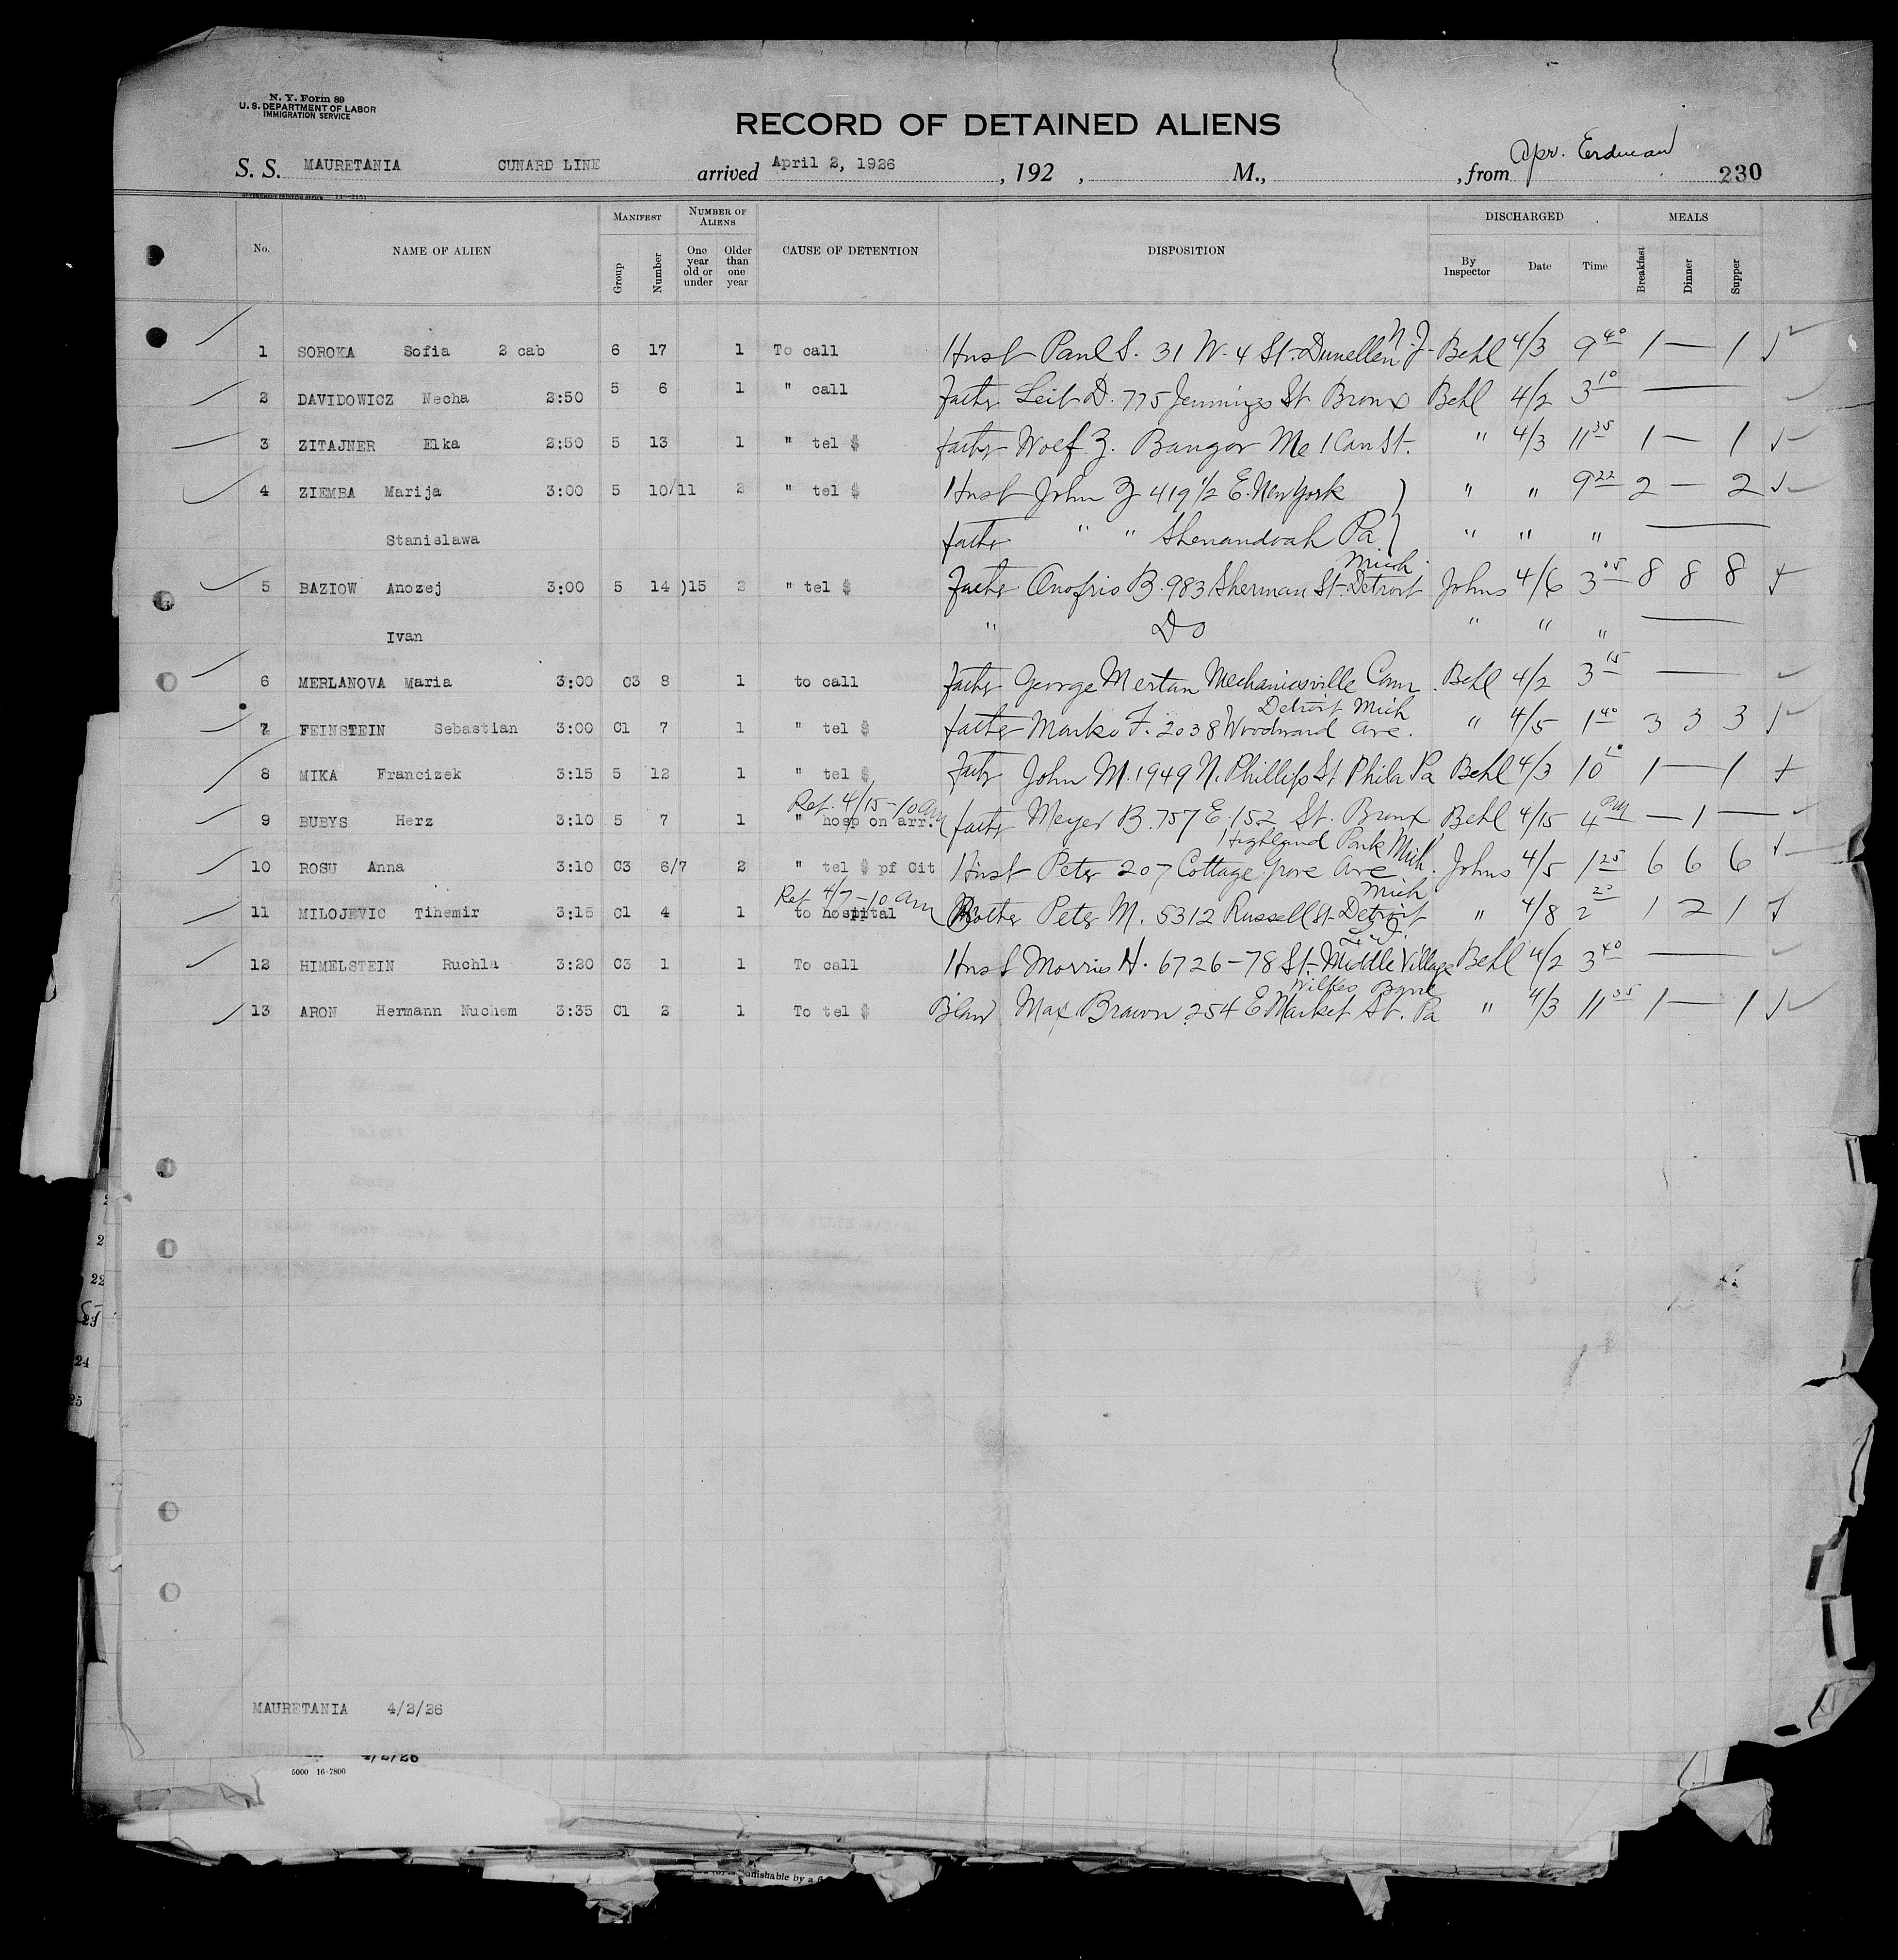 N. Y. Form 89
U. S. DEPARTMENT OF LABOR
IMMIGRATION SERVICE
RECORD OF DETAINED ALIENS
S. S. MAURETANIA CUNARD LINE arrived April 2, 1926, 192 , M., , from Apr. Erdman 230
No. NAME OF ALIEN MANIFEST Group Number NUMBER OF ALIENS One year old or under Older than one year CAUSE OF DETENTION DISPOSITION DISCHARGED By Inspector Date Time MEALS Breakfast Dinner Supper
1 SOROKA Sofia 2 cab 6 17 1 To call Husb Paul S. 31 W. 4 St. Dunellen N. J. Behl 4/3 9 40 1 — 1
2 DAVIDOWICZ Necha 2:50 5 6 1 " call Father Leib D. 775 Jennings St Bronx Behl 4/2 3 10 —
3 ZITAJNER Elka 2:50 5 13 1 " tel $ father Wolf Z. Bangor Me 1 Can St. " 4/3 11 35 1 — 1
4 ZIEMBA Marija 3:00 5 10/11 2 " tel $ Husb John Z 419 1/2 E. New York " " 9 22 2 — 2
Stanislawa father " " Shenandoah Pa " " " —
5 BAZIOW Anozej 3:00 5 14 )15 2 " tel $ Father Onofrio B. 983 Sherman St. Detroit Mich. Johns 4/6 3 05 8 8 8
Ivan " Do " " " —
6 MERLANOVA Maria 3:00 C3 8 1 to call Father George Mertan Mechanicsville Conn. Behl 4/2 3 15 —
7 FEINSTEIN Sebastian 3:00 C1 7 1 " tel $ father Marko F. 2038 Woodward Ave. Detroit Mich " 4/5 1 40 3 3 3
8 MIKA Francizek 3:15 5 12 1 " tel $ Fathr John M. 1949 N. Phillips St Phila Pa Behl 4/3 10 10 1 — 1
9 BUBYS Herz 3:10 5 7 1 Ret. 4/15-10 am " hosp on arr. father Meyer B. 757 E. 152 St. Bronx Behl 4/15 4 PM — 1 —
10 ROSU Anna 3:10 C3 6/7 2 " tel $ pf Cit Husb Peter 207 Cottage Grove Ave Highland Park Mich. Johns 4/5 1 25 6 6 6
11 MILOJEVIC Tihemir 3:15 C1 4 1 Ret 4/7-10 am to hospital Peter M. 5312 Russell St. Detroit Mich " 4/8 2 20 1 2 1
12 HIMELSTEIN Ruchla 3:20 C3 1 1 To call Husb Morris H. 6726-78 St. Middle Village L. I. Behl 4/2 3 40 —
13 ARON Hermann Nuchem 3:35 C1 2 1 To tel $ Blaw Max Brawn 254 E Market St. Wilkes Barre Pa " 4/3 11 35 1 — 1
MAURETANIA 4/2/26
4/2/26
5000 16-7800